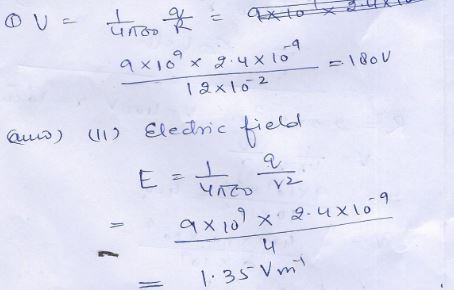 ① V = 1/4πε0 q/R =
9×10⁹ × 2.4×10⁻⁹ / 12×10⁻² = 180V
(ii) Electric field
E = 1/4πε0 q/r2
= 9×10⁹ × 2.4×10⁻⁹ / 4
= 1.35 Vm⁻¹